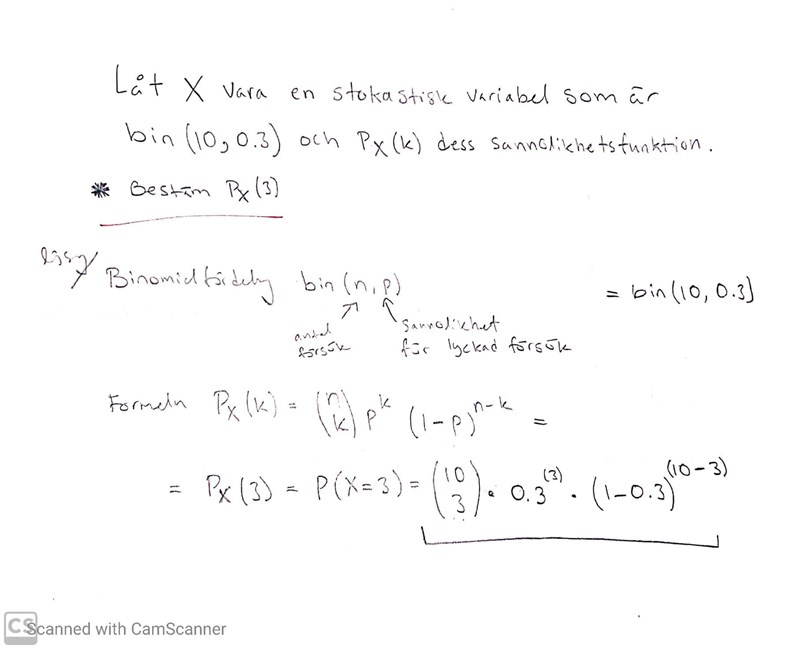 Låt X vara en stokastisk variabel som är
bin (10, 0.3) och Px(k) dess sannolikhetsfunktion.
* Bestäm Px(3)
Binomialfördelning bin (n, p) = bin (10, 0.3)
antal försök
sannolikhet för lyckad försök
Formeln Px(k) = (n k) p^k (1-p)^n-k =
= Px(3) = P(X=3) = (10 3) · 0.3^(3) · (1-0.3)^(10-3)
CS Scanned with CamScanner